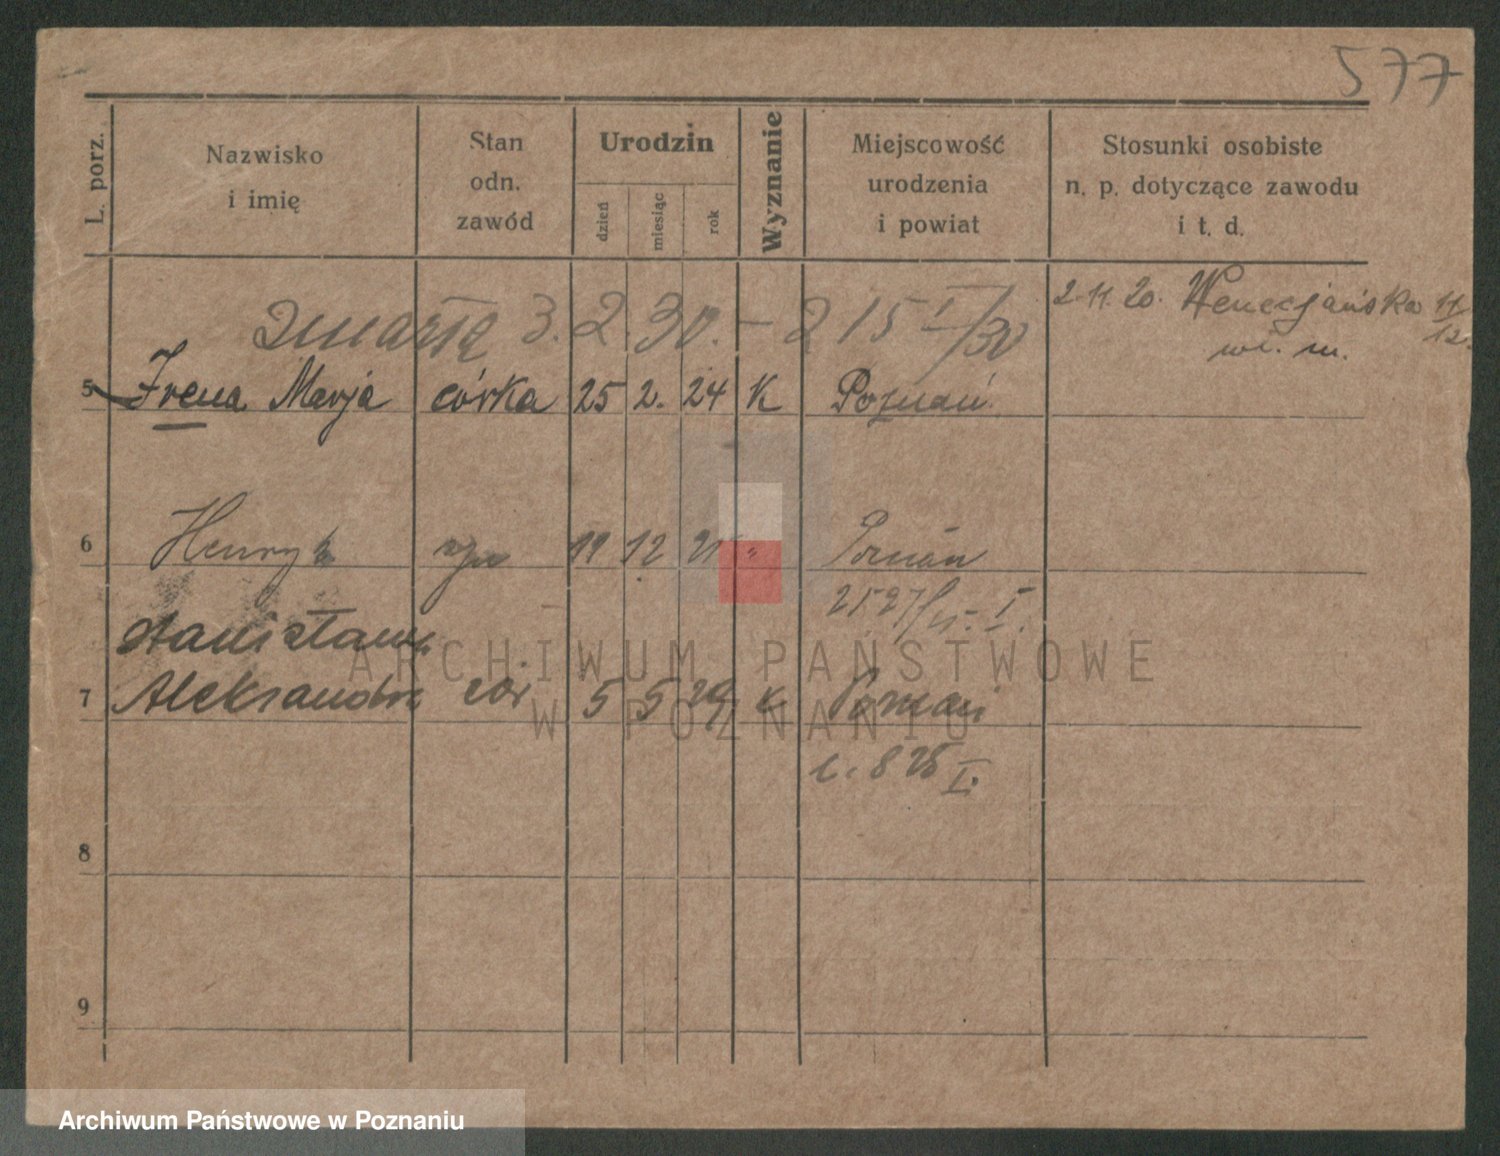 577
L. porz.
Nazwisko
i imię
Stan
odn.
zawód
Urodzin
dzień
miesiąc
rok
Wyznanie
Miejscowość
urodzenia
i powiat
Stosunki osobiste
n. p. dotyczące zawodu
i t. d.
zmarła 3. 2. 30. – 2 15 I/30
2.11.20. Wenecjańska 11/12.
5 Irena Marja córka 25 2. 24 K Poznań
6 Henryk syn 11 12 "
2527/ I.
Stanisława
7 Aleksandra 5 5 29 K Poznań
L. 828 I.
8
9
ARCHIWUM PAŃSTWOWE
W POZNANIU
Archiwum Państwowe w Poznaniu